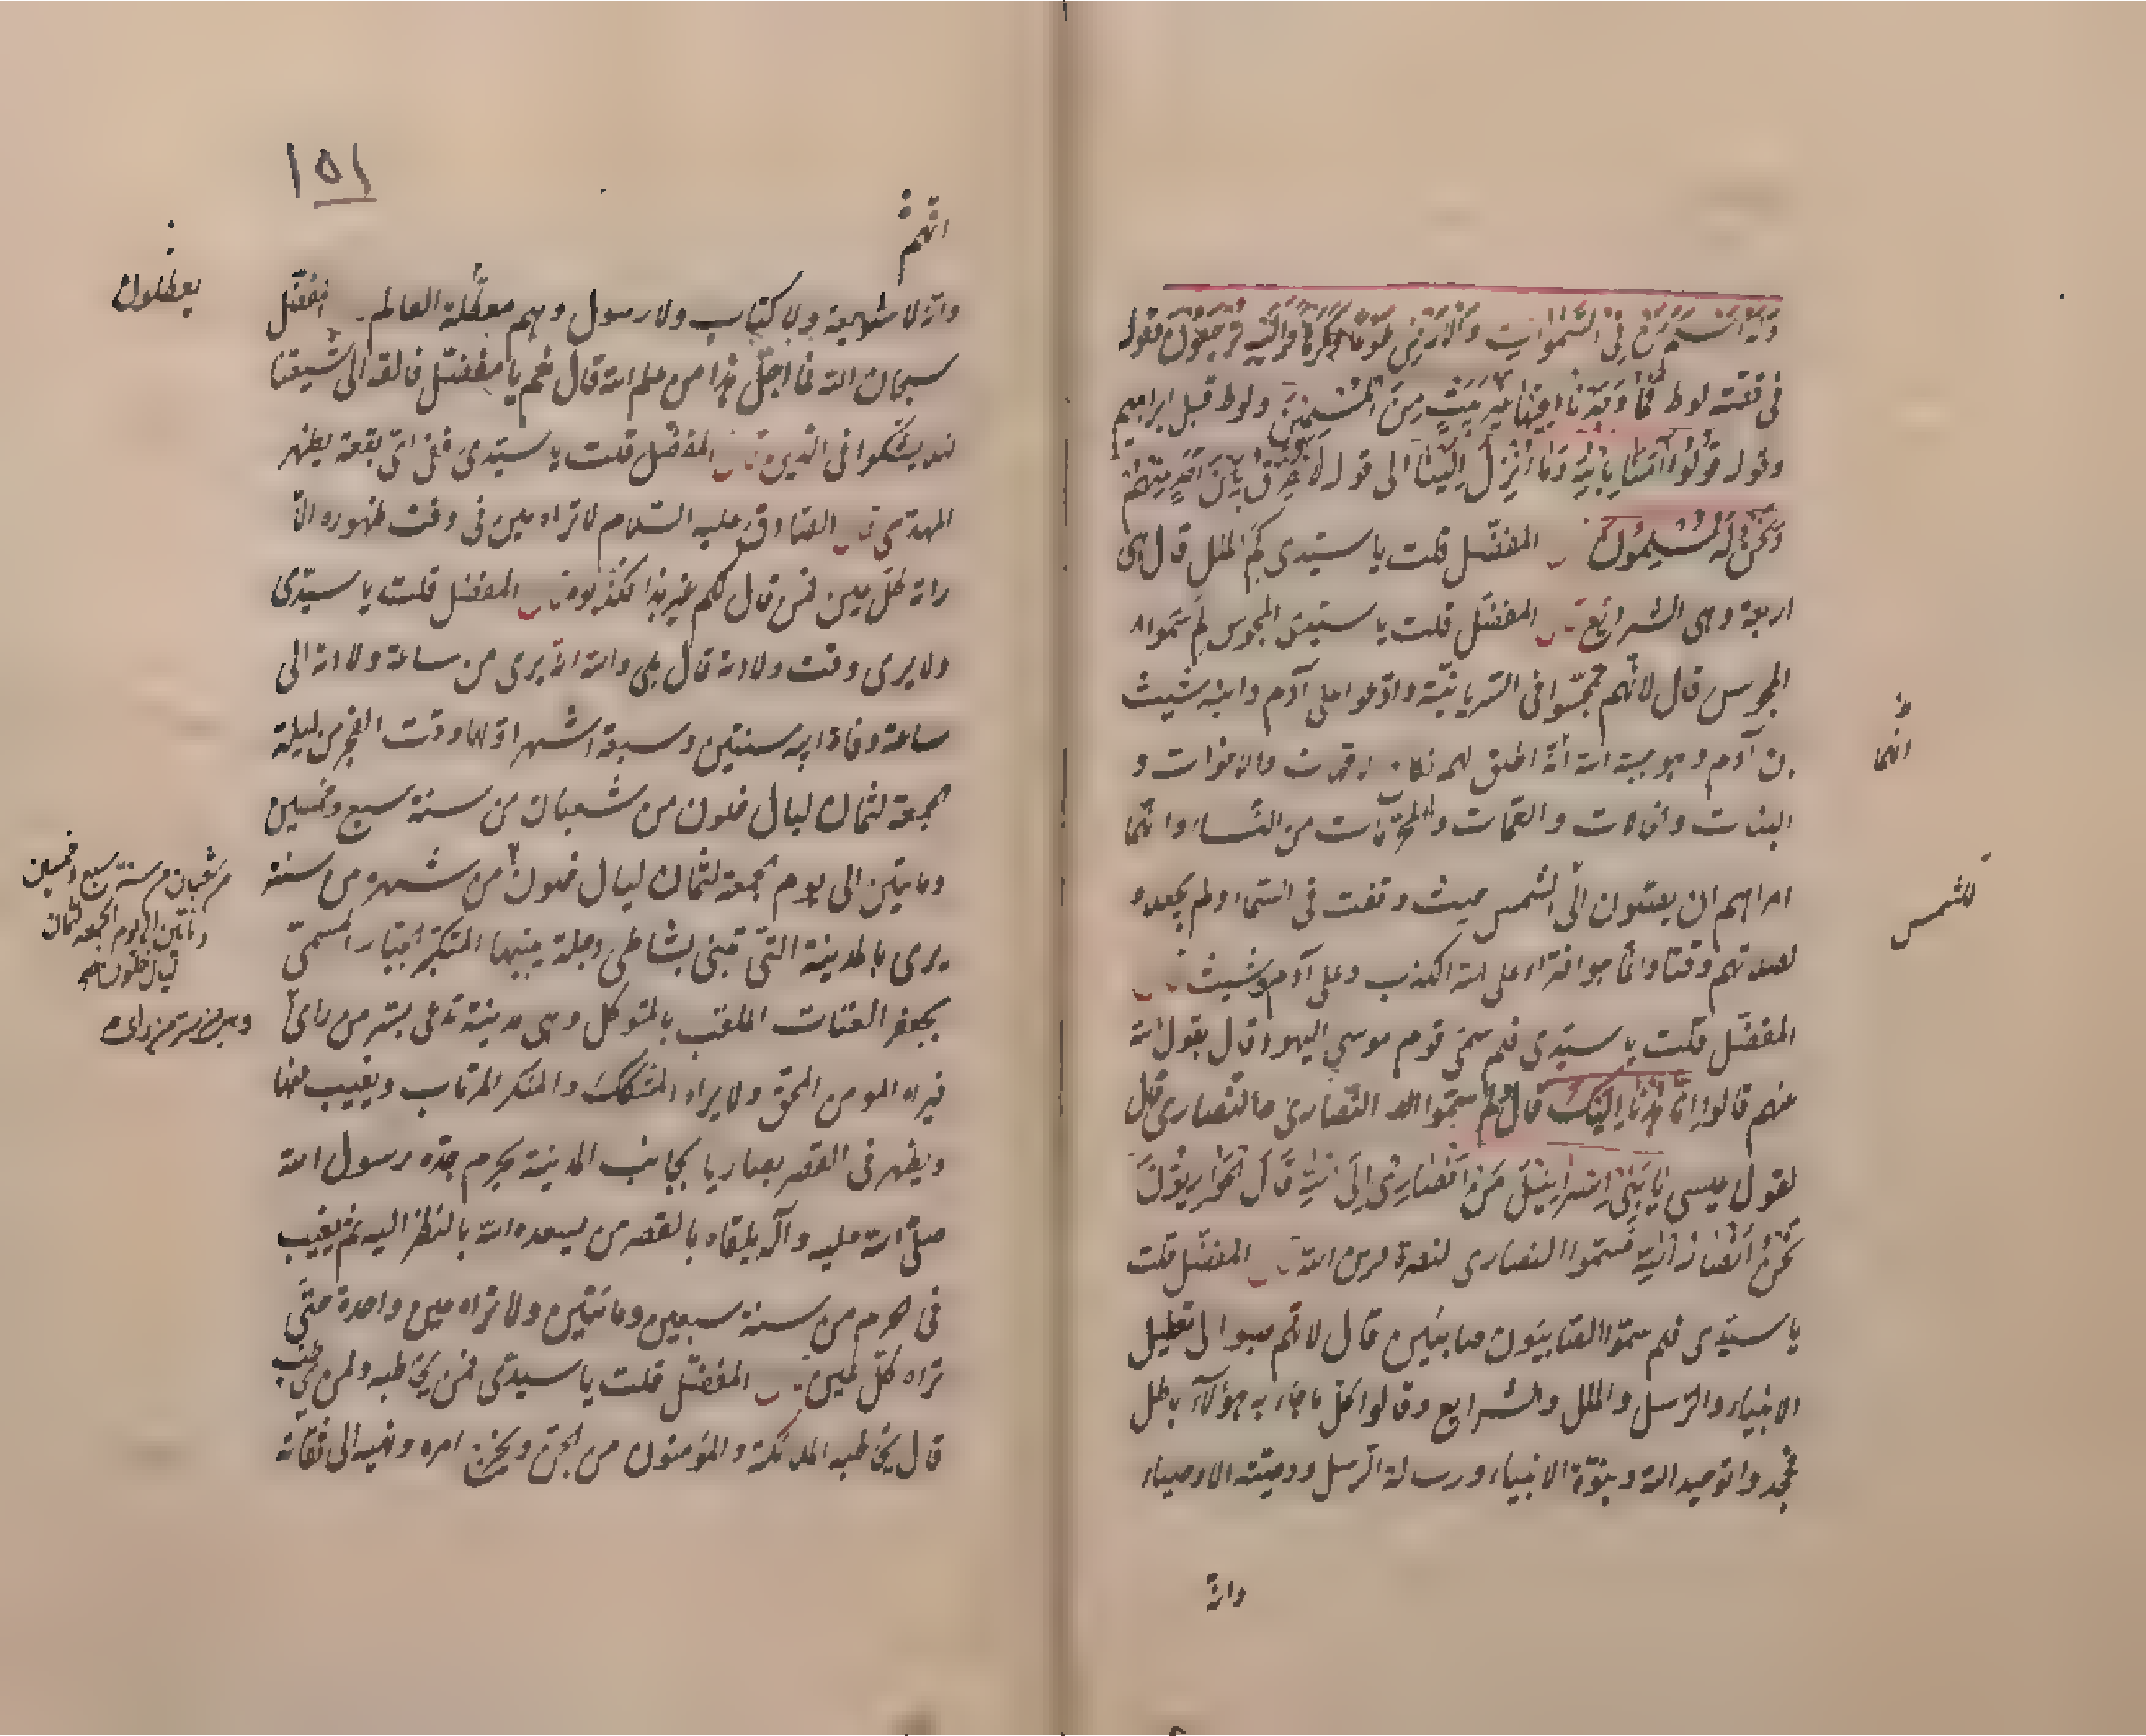 وله اسلم من فى السموات والارض طوعا وكرها واليه ترجعون فقوله
فى قصّة لوط فما وجدنا فيها غير بيت من المسلمين ولوط قبل ابراهيم
وقوله قولوا امنّا بالله وما انزل الينا الى قوله لا نفرق بين احد منهم
ونحن له مسلمون المفضّل قلت يا سيّدى كم الملل قال هى
اربعة وهى الشرايع قال المفضّل قلت يا سيّدى المجوس لم سمّوا
المجوس قال لانّهم تمجّسوا فى السريانيّة وادّعوا على آدم وابنه شيث
بن آدم وهو هبة الله انّه اطلق لهم نكاح الامّهات والاخوات و
البنات والخالات والعمّات والمحرّمات من النّساء وانّما
امراهم ان يصلّون الى الشمس حيث وقفت فى السّماء ولم يجعل
لصلاتهم وقتا وانّما هو افتراء على الله الكذب وعلى آدم وشيث قال
المفضّل قلت يا سيّدى فلم سمّى قوم موسى اليهود قال بقول الله
عنهم قالوا انّا هدنا اليك قال فلم سمّوا النّصارى بالنّصارى قال
لقول عيسى يا بنى اسرائيل من انصارى الى الله قال الحواريّون
نحن أنصار الله فسمّوا النصارى لنصرة دين الله قال المفضّل قلت
يا سيّدى فلم سمّوا الصّابئون صابئين قال لانّهم صبوا الى تعطيل
الانبياء والرّسل والملل والشرايع وقالوا كلّ ما جاء به هؤلاء باطل
فجحدوا توحيد الله ونبوّة الانبياء ورسالة الرّسل ووصيّة الاوصياء
وانّه
انّما
للشمس
١٥١
انّهم
وانّه لا شريعة ولا كتاب ولا رسول وهم معطّلة العالم. المفضّل
سبحان الله فما اجلّ هذا من علم الله قال نعم يا مفضّل فالقه الى شيعتنا
لئلا يشكّوا فى الدّين قال المفضّل قلت يا سيّدى ففى اىّ بقعة يظهر
المهدى قال الصّادق عليه السّلام لا تراه عين فى وقت ظهوره الّا
رأته كلّ عين فمن قال لكم غير هذا فكذّبوه قال المفضّل قلت يا سيّدى
ولا يرى وقت ولادته قال بلى والله انّه يرى من ساعة ولادته الى
ساعة وفاة ابيه سنتين وسبعة اشهر اوّلها وقت الفجر من ليلة
الجمعة لثمان ليال خلون من شعبان من سنة سبع وخمسين
ومايتين الى يوم الجمعة لثمان ليال خلون من شهر من سنة
يرى بالمدينة الّتى تبنى بشاطى دجلة يبنيها المتكبّر الجبّار المسمّى
بجعفر الملقّب بالمتوكل وهى مدينة تدعى بسرّ من راى
فيراه المومن المحقّ ولا يراه المتشكّك والمنكر المرتاب ويغيب عنها
ويظهر فى القصر بصاريا بجانب المدينة بحرم جدّه رسول الله
صلّى الله عليه وآله يلقاه بالقصر من يسعده الله بالنظر اليه ثم يغيب
فى محرم من سنة سبعين ومائتين ولا تراه عين واحدة حتّى
تراه كلّ عين قال المفضّل قلت يا سيّدى فمن يخاطبه ولمن يخاطب
قال يخاطبه الملائكة والمؤمنون من الجنّ ويخرج امره ونهيه الى ثقاته
يعطلون
من شعبان من سنة سبع وخمسين
ومائتين الى يوم الجمعة لثمان
ليال خلون